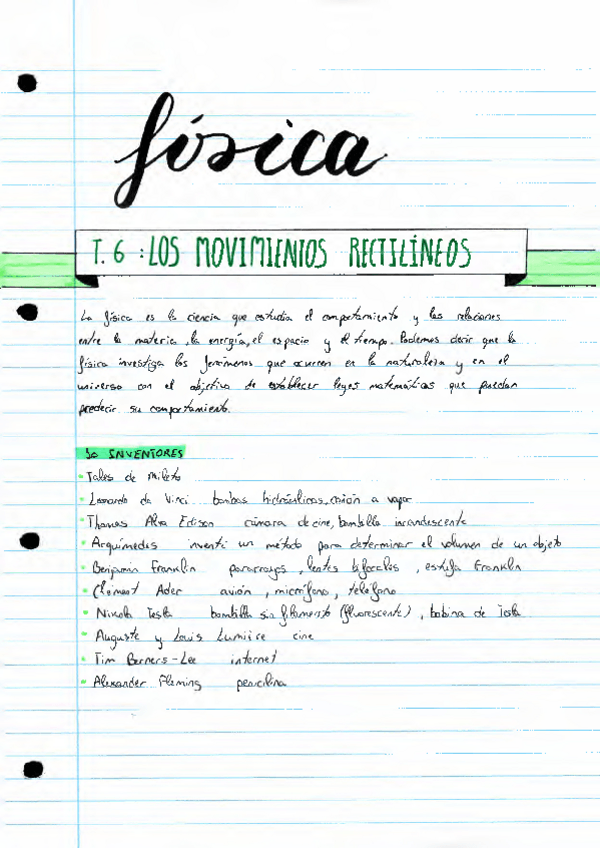 física
T. 6 : LOS MOVIMIENTOS RECTILÍNEOS
La física es la ciencia que estudia el comportamiento y las relaciones
entre la materia, la energía, el espacio y el tiempo. Podemos decir que la
física investiga los fenómenos que ocurren en la naturaleza y en el
universo con el objetivo de establecer leyes matemáticas que puedan
predecir su comportamiento.
10 INVENTORES
Tales de Mileto
Leonardo da Vinci bombas hidráulicas, cañón a vapor
Thomas Alva Edison cámara de cine, bombilla incandescente
Arquímedes inventó un método para determinar el volumen de un objeto
Benjamin Franklin pararrayos, lentes bifocales, estufa Franklin
Clement Ader avión, micrófono, teléfono
Nikola Tesla bombilla sin filamento (fluorescente), bobina de Tesla
Auguste y Louis Lumière cine
Tim Berners-Lee internet
Alexander Fleming penicilina